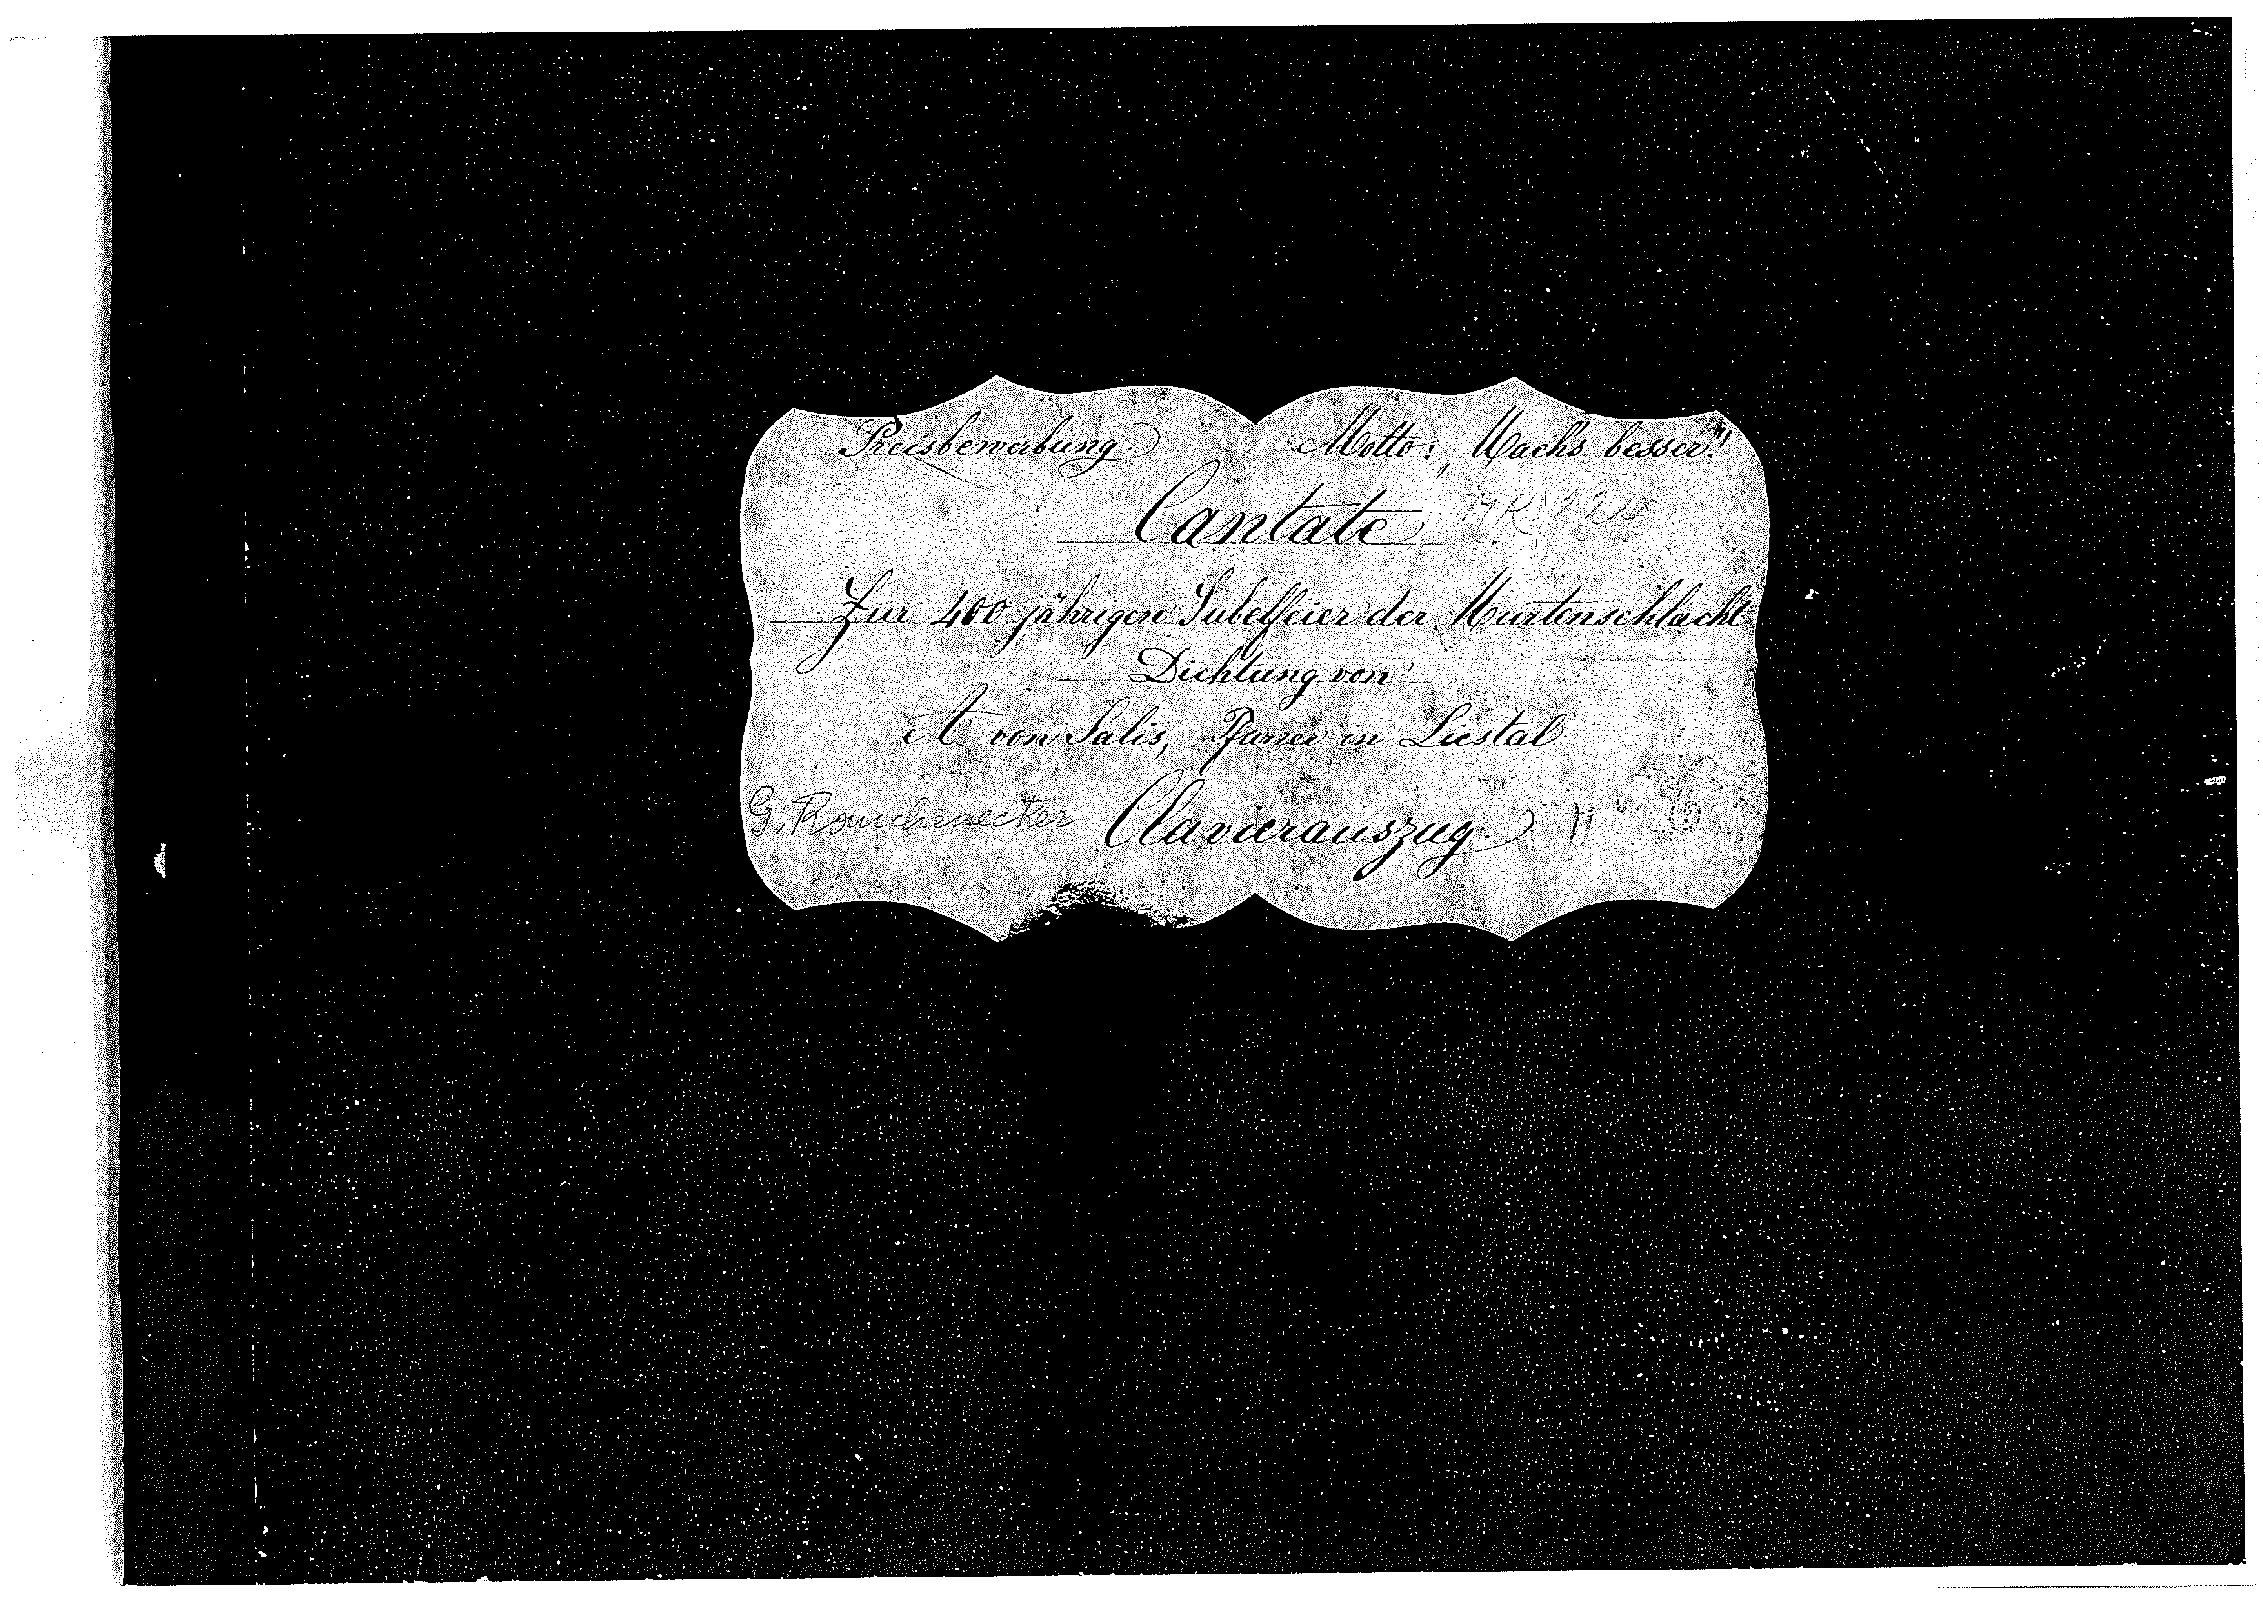 Preisbewerbung. Motto: „Machs besser"!
Cantate
Zur 400 jährigen Jubelfeier der Murtenschlacht
Dichtung von
A von Salis, Pfarrer in Liestal
G. Rauchenecker Clavierauszug.